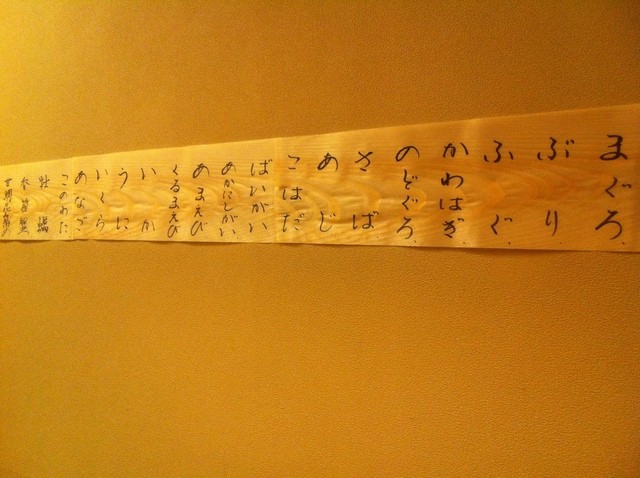 まぐろ
ぶり
ふぐ
かわはぎ
のどぐろ
さば
あじ
こはだ
ばいがい
あかにしがい
あまえび
くるまえび
いか
うに
いくら
あなご
このわた
牡蠣